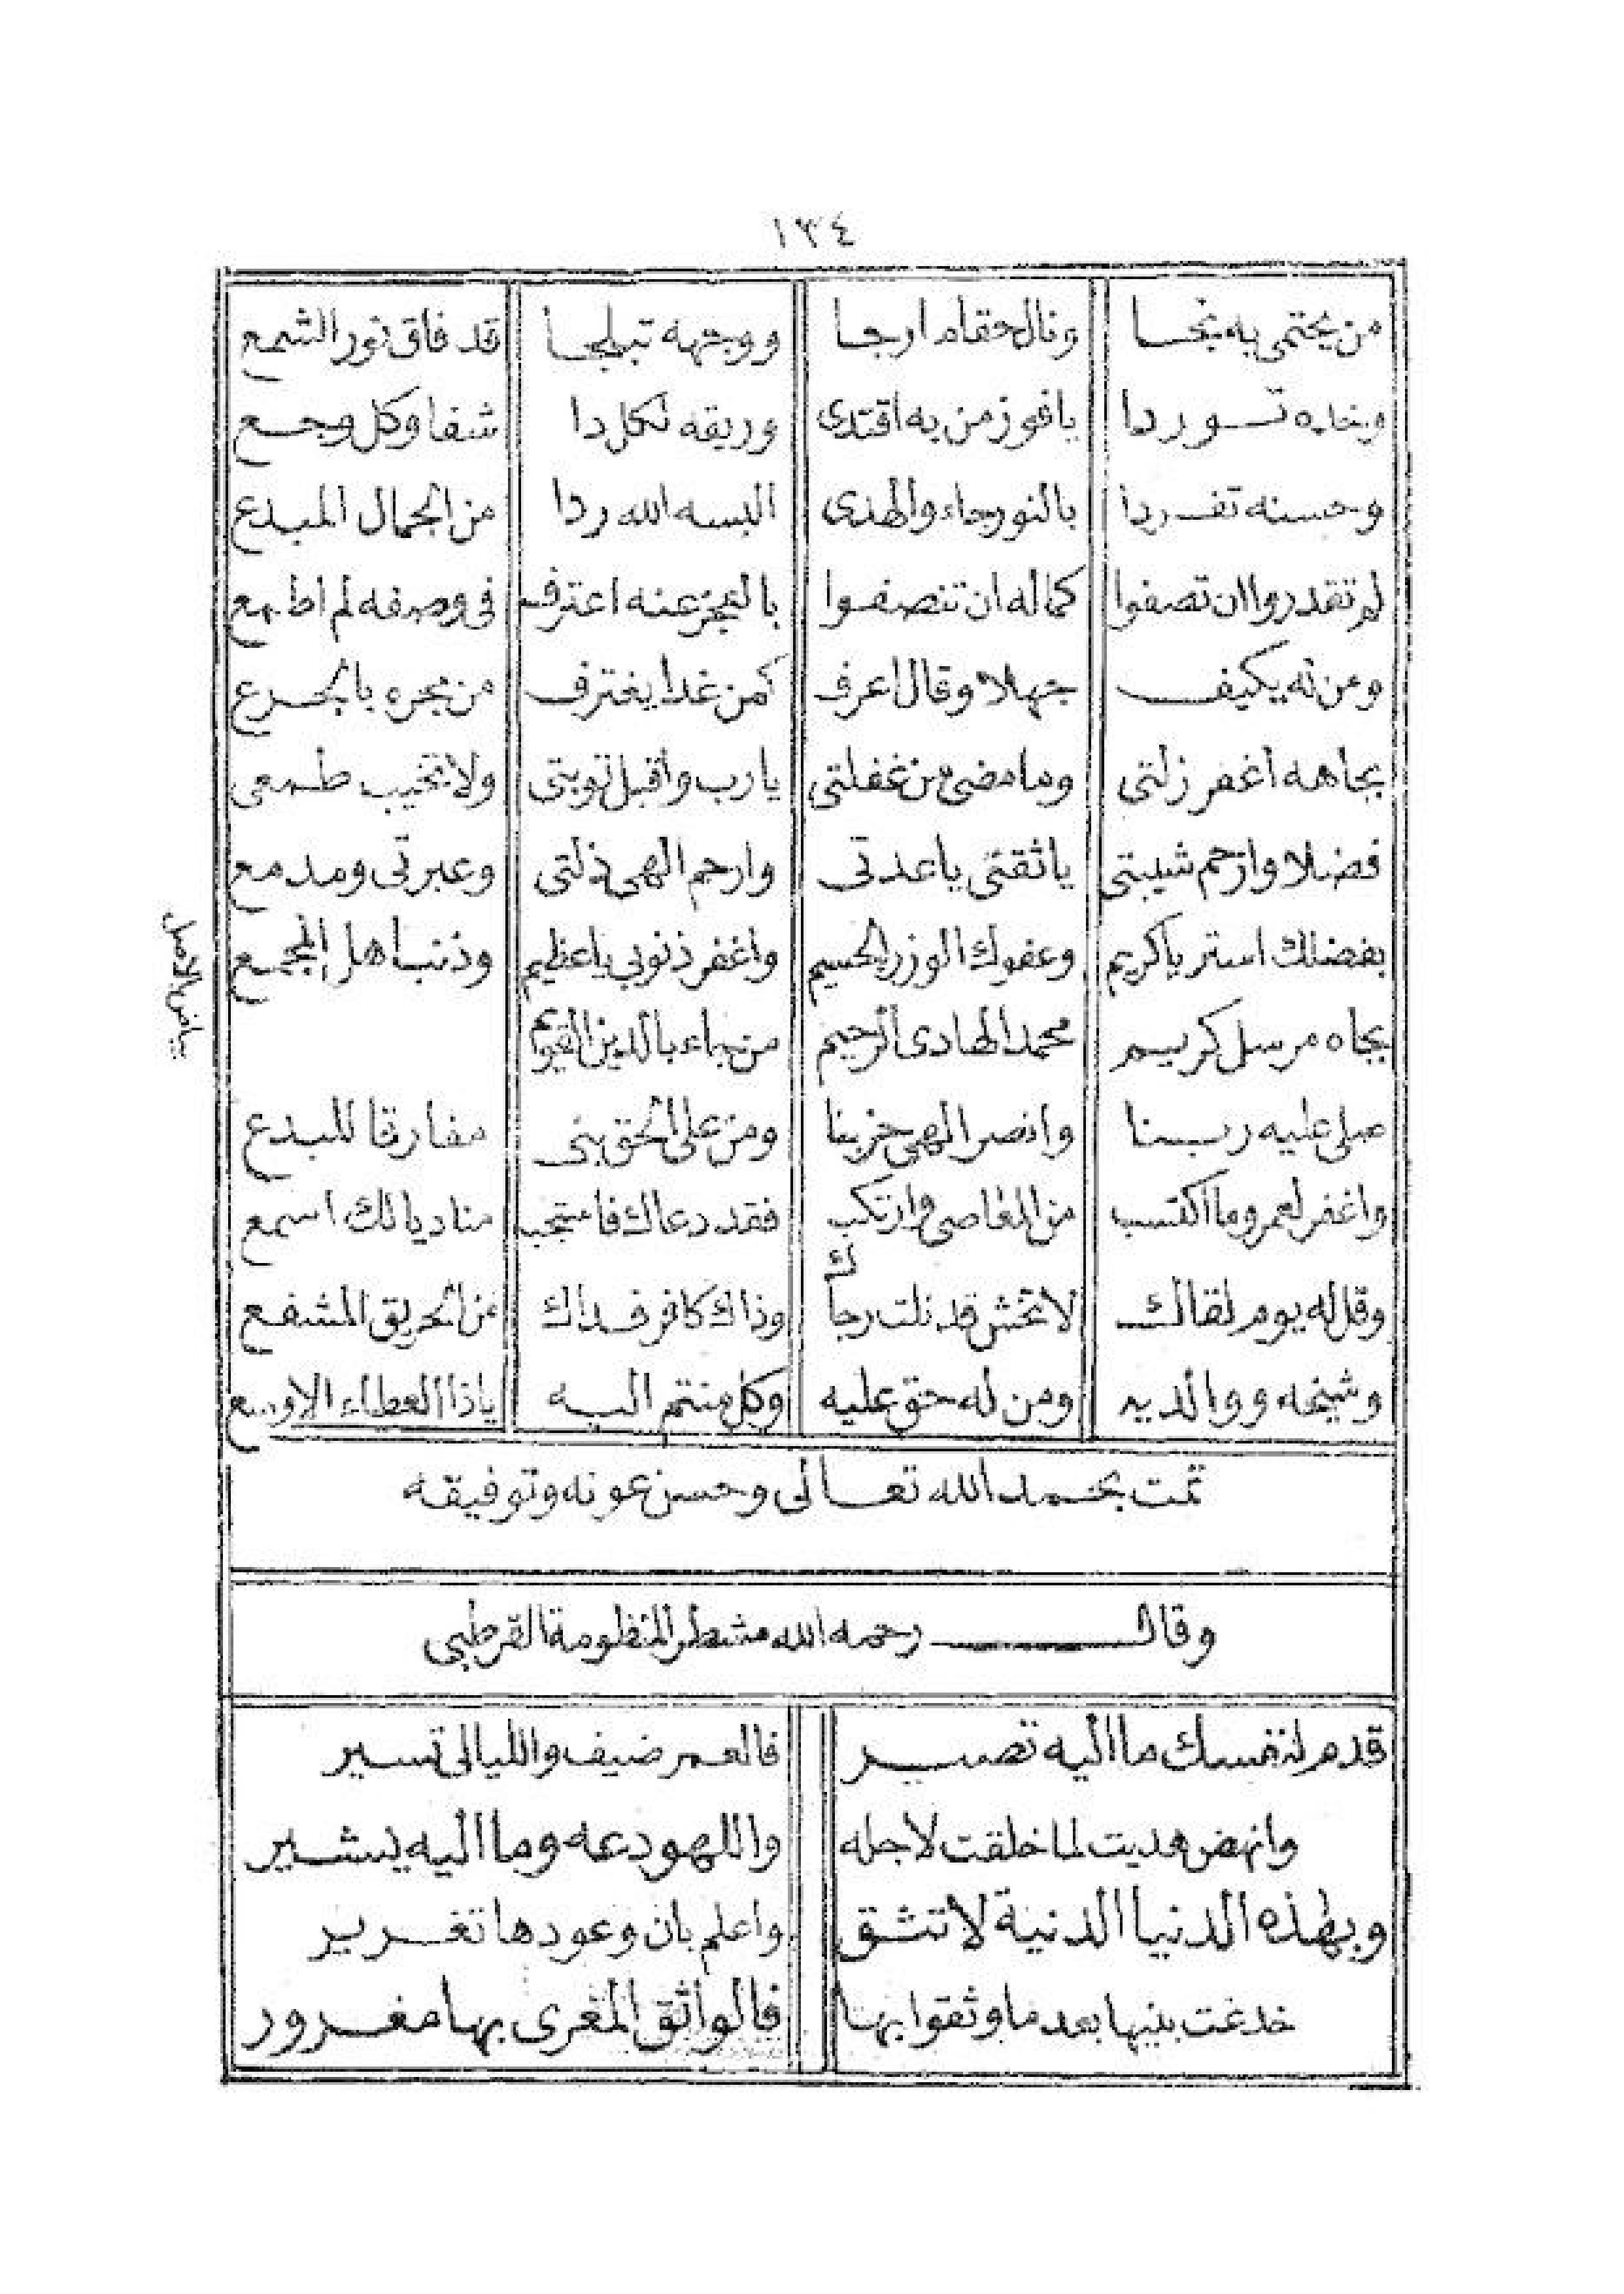 ١٣٤
من يحتمى به نجا ونال حقا ما ارجا ووجهه تبلجا قد فاق نور الشمع
وخده توردا يا فوز من به اقتدى وريقه لكل دا شفا وكل وجع
وحسنه تفردا بالنور جاء والهدى البسه الله ردا من الجمال المبدع
لم تقدروا ان تصفوا كماله ان تنصفوا بالعجز عنه اعترف فى وصفه لم اطمع
ومن له يكيف جهلا وقال اعرف كمن غدا يغترف من بحره بالجرع
بجاهه اغفر زلتى وما مضى من غفلتى يارب واقبل توبتى ولا تخيب طمعى
فضلا وارحم شيبتى يا ثقتى يا عدتى وارحم الهى ذلتى وعبرتى ومدمع
بفضلك استر يا كريم وعفوك الوزر الجسيم واغفر ذنوبى يا عظيم وذنب اهل المجمع
بجاه مرسل كريم محمد الهادى الرحيم من جاء بالدين القويم
بياض بالاصل
صلى عليه ربنا وانصر الهى حزبنا ومن على الحق بنى مفارقا للبدع
واغفر لعمر وما اكتسب من المعاصى وارتكب فقد دعاك فاستجب مناديا لك اسمع
وقل له يوم لقاك لا تخش قد نلت رجاك وذاك كافر فداك من الحريق المشفع
وشيخه ووالديه ومن له حق عليه وكل منتم اليه ياذا العطاء الاوسع
تمت بحمد الله تعالى وحسن عونه وتوفيقه
وقال رحمه الله مشطر المنظومة القرطبى
قدم لنفسك ما اليه تصير فالعمر ضيف والليالى تسير
وانهض هديت لما خلقت لاجله واللهو دعه وما اليه يشير
وبهذه الدنيا الدنية لا تثق واعلم بان وعودها تغرير
خدعت بنيها بعد ما وثقوا بها فالواثق المغرى بها مغرور